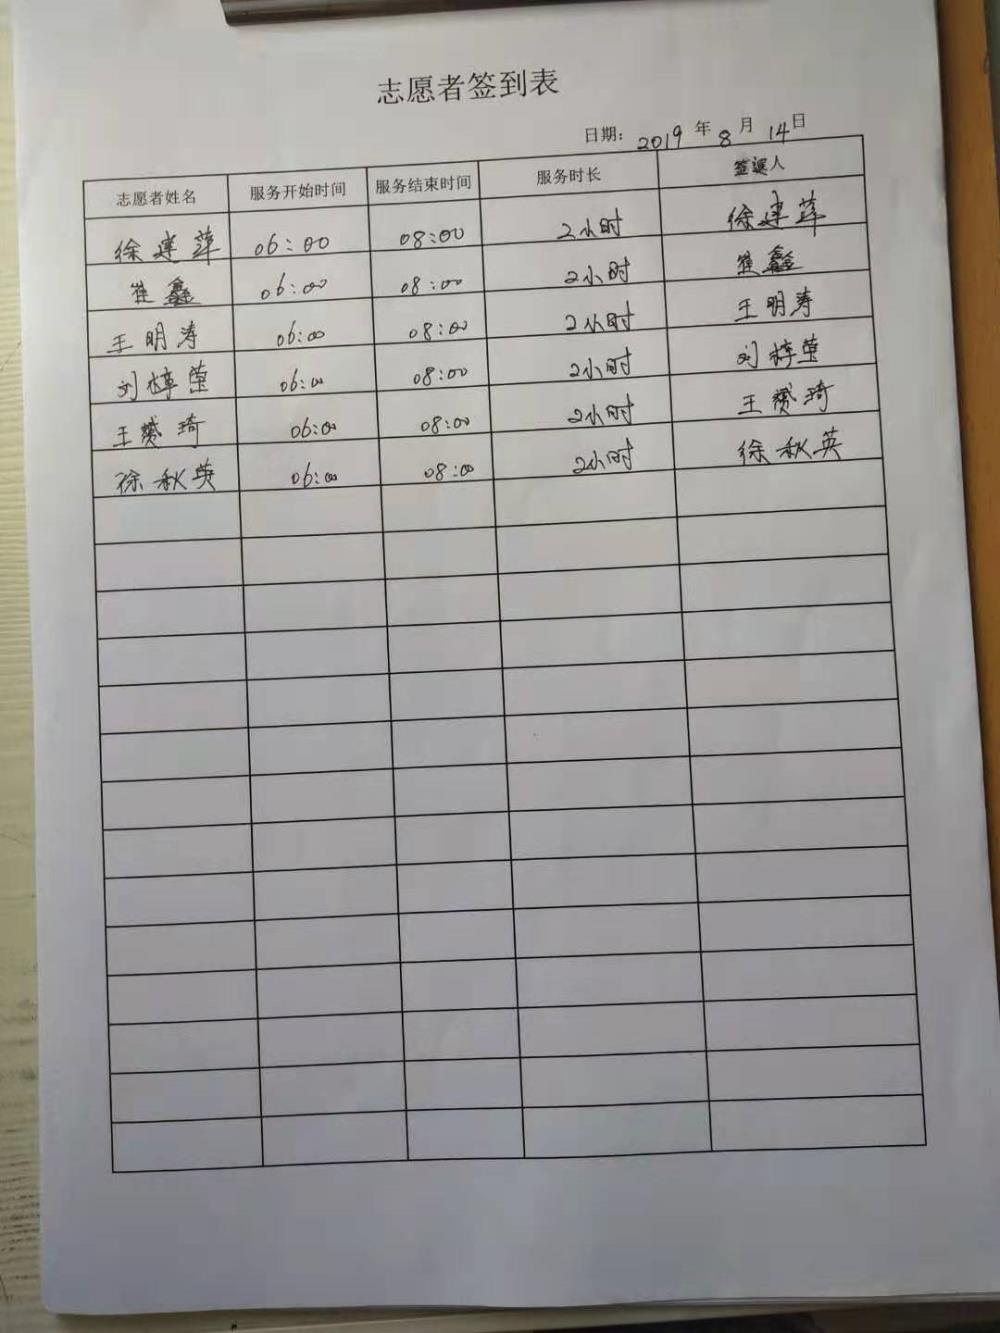 志愿者签到表
日期： 2019 年 8 月 14日
志愿者姓名 服务开始时间 服务结束时间 服务时长 签退人
徐建萍 06:00 08:00 2小时 徐建萍
崔鑫 06:00 08:00 2小时 崔鑫
王明涛 06:00 08:00 2小时 王明涛
刘梓莹 06:00 08:00 2小时 刘梓莹
王赟琦 06:00 08:00 2小时 王赟琦
徐秋英 06:00 08:00 2小时 徐秋英